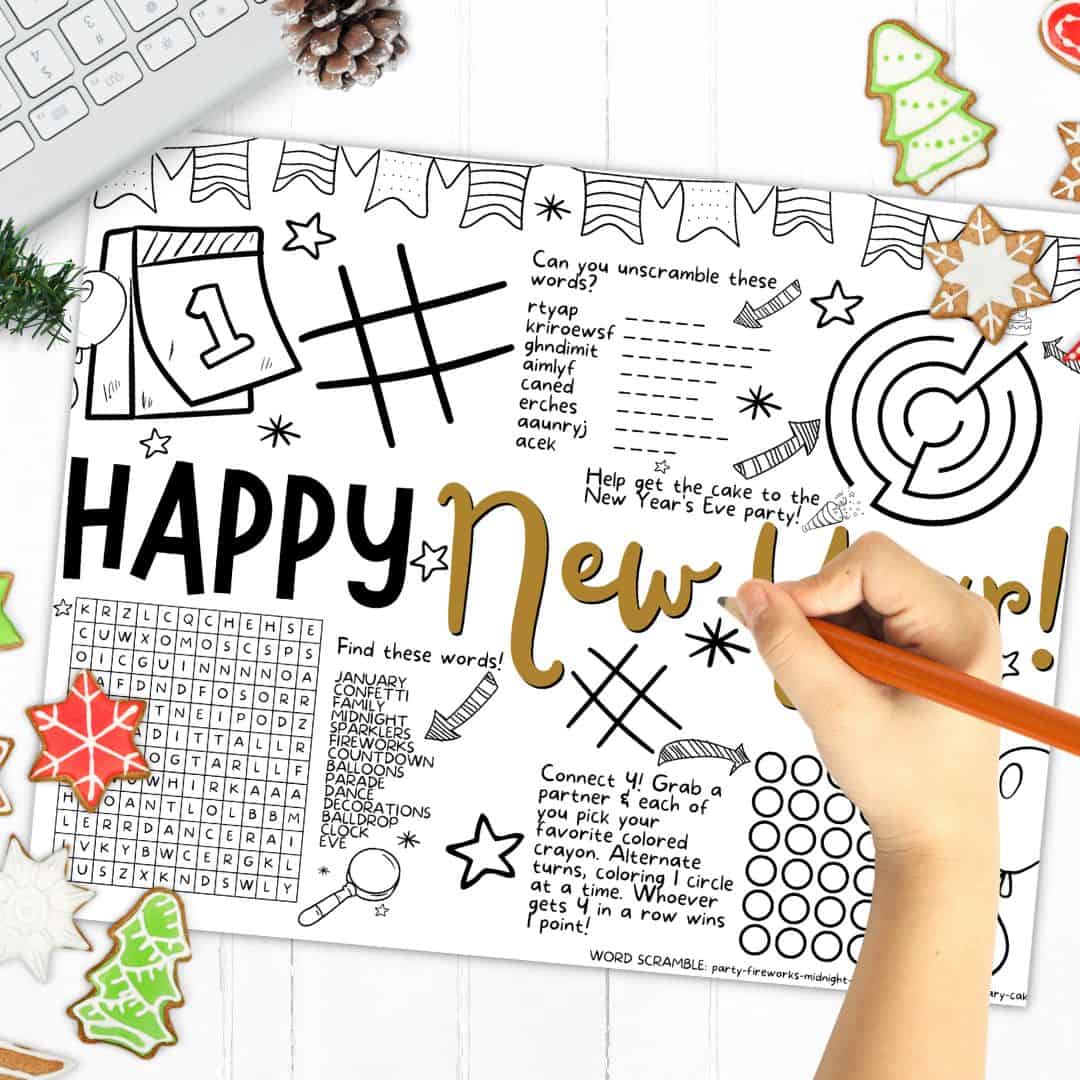 1
Can you unscramble these
words?
rtyap
kriroewsf
ghndimit
aimlyf
caned
erches
aaunryj
acek
Help get the cake to the
New Year's Eve party!
HAPPY New
K R Z L C Q C H E H S E
C U W X O M O S C S P S
O I C G U I N N N N O A
A F D N D F O S O R R
T N E I P O D Z
D I T T A L L R
O G T A R L L F
W H I R K A A A
H O A N T L O L B B M
L E R R D A N C E R A I
V K Y B W C E R G K L
U S Z X K N D S W L Y
Find these words!
JANUARY
CONFETTI
FAMILY
MIDNIGHT
SPARKLERS
FIREWORKS
COUNTDOWN
BALLOONS
PARADE
DANCE
DECORATIONS
BALLDROP
CLOCK
EVE
Connect 4! Grab a
partner & each of
you pick your
favorite colored
crayon. Alternate
turns, coloring 1 circle
at a time. Whoever
gets 4 in a row wins
1 point!
WORD SCRAMBLE: party-fireworks-midnight-